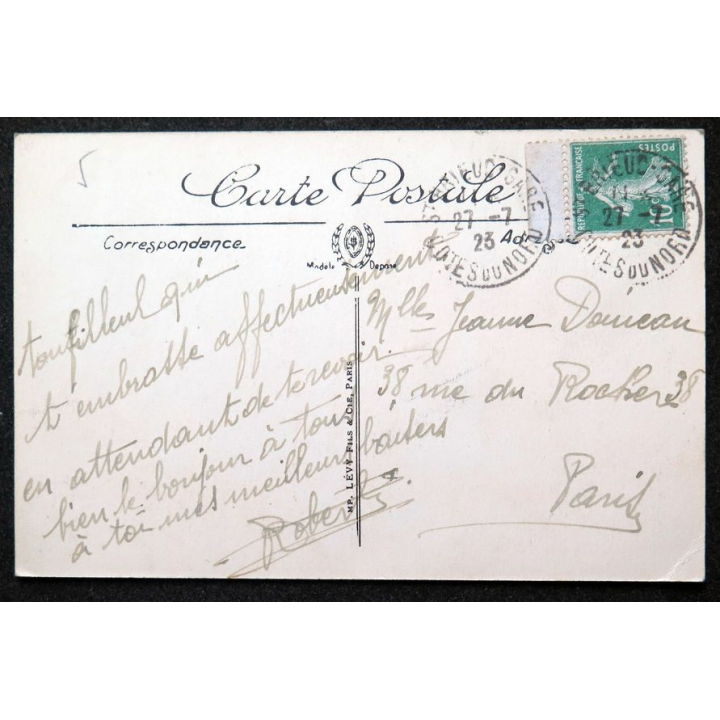 5
Carte Postale
Correspondance
Adresse
Modèle Déposé
ton filleul qui
t'embrasse affectueusement
en attendant de te revoir.
bien le bonjour à tous
à toi mes meilleurs baisers
Robert
IMP. LÉVY FILS & CIE, PARIS
Mlle Jeanne
38 rue du Rocher 38
Paris
POSTES
REPUBLIQUE FRANÇAISE
10
ST BRIEUC GARE
27 -7
23
COTES DU NORD
ST BRIEUC GARE
27 -7
23
COTES DU NORD